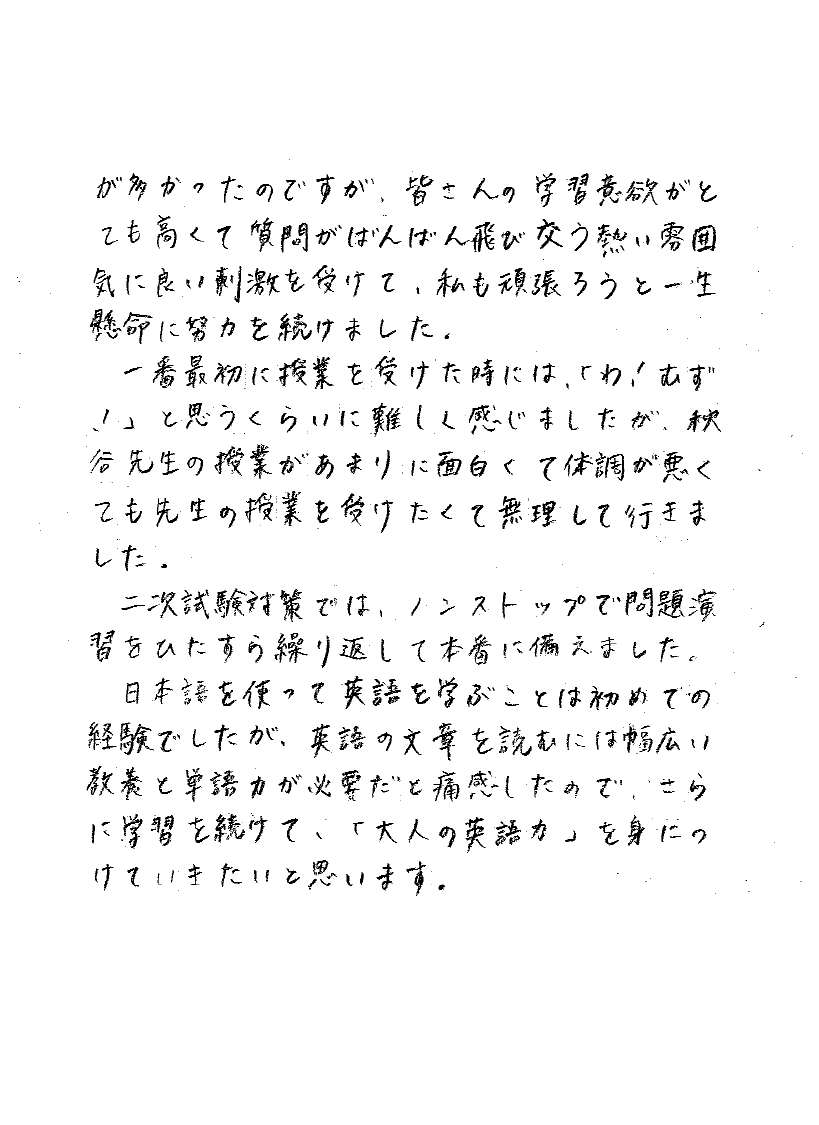 が多かったのですが、皆さんの学習意欲がと
ても高くて質問がばんばん飛び交う熱い雰囲
気に良い刺激を受けて、私も頑張ろうと一生
懸命に努力を続けました。
一番最初に授業を受けた時には、「わ！むず
！」と思うくらいに難しく感じましたが、秋
谷先生の授業があまりに面白くて体調が悪く
ても先生の授業を受けたくて無理して行きま
した。
二次試験対策では、ノンストップで問題演
習をひたすら繰り返して本番に備えました。
日本語を使って英語を学ぶことは初めての
経験でしたが、英語の文章を読むには幅広い
教養と単語力が必要だと痛感したので、さら
に学習を続けて、「大人の英語力」を身につ
けていきたいと思います。